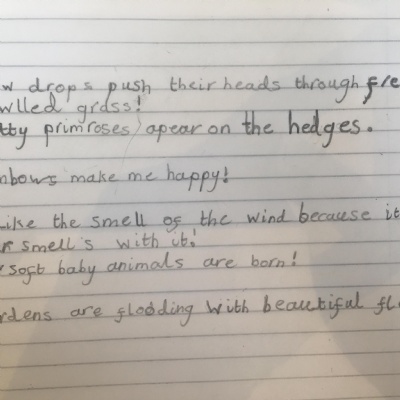 w drops push their heads through fre
wlled grass!
tty primroses apear on the hedges.
nbows make me happy!
like the smell of the wind because it
r smell's with it!
soft baby animals are born!
rdens are flooding with beautiful fl